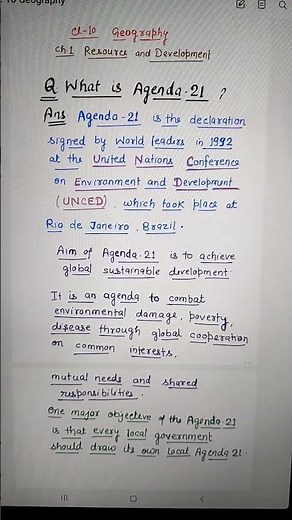 10 Geography
Cl-10 Geography
Ch.1 Resource and Development
Q What is Agenda-21 ?
Ans Agenda-21 is the declaration
signed by World leaders in 1992
at the United Nations Conference
on Environment and Development
(UNCED), which took place at
Rio de Janeiro, Brazil.
Aim of Agenda-21 is to achieve
global sustainable development
It is an agenda to combat
environmental damage, poverty,
disease through global cooperation
on common interests,
mutual needs and shared
responsibilities.
One major objective of the Agenda-21
is that every local government
should draw its own local Agenda 21.